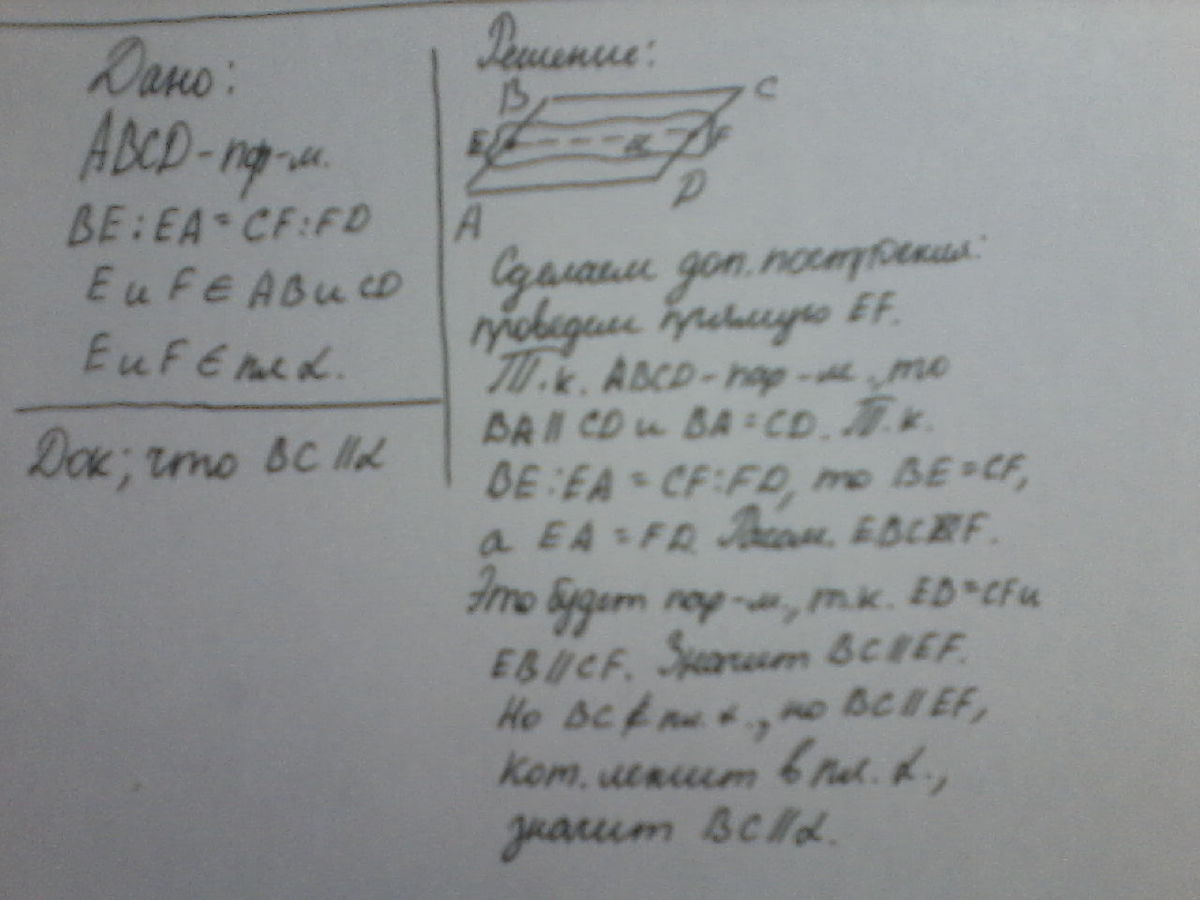 Дано:
ABCD - пар-м.
BE:EA = CF:FD
E и F ∈ AB и CD
E и F ∈ пл α.
Док; что BC || α
Решение:
B
C
E
α
F
A
D
Сделаем доп. построения:
проведем прямую EF.
Т.к. ABCD - пар-м, то
BA || CD и BA = CD. Т.к.
BE:EA = CF:FD, то BE = CF,
а EA = FD. Рассм. EBCF.
Это будет пар-м, т.к. EB = CF и
EB || CF. Значит BC || EF.
Но BC ∉ пл. α., но BC || EF,
кот. лежит в пл. α.,
значит BC || α.